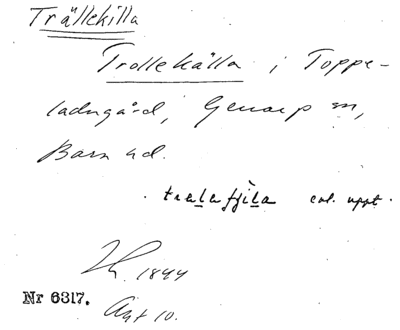 Trällekilla
Trollekälla i Toppe-
ladugård, Genarp sn,
Bara hd.
enl. uppt.
1844
Nr 6317.
Akt 10.